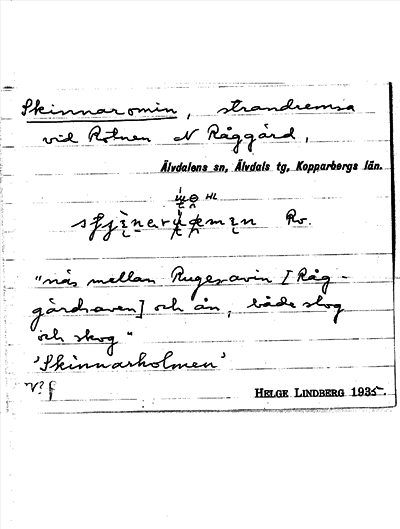 Skinnaromin, strandremsa
vid Rotnen N Råggård,
Älvdalens sn, Älvdals tg, Kopparbergs län.
HL
Rv.
"näs mellan Rugesavin [Råg-
gårdsaven] och ån, både slog
och skog"
'Skinnarholmen'
HELGE LINDBERG 1935.